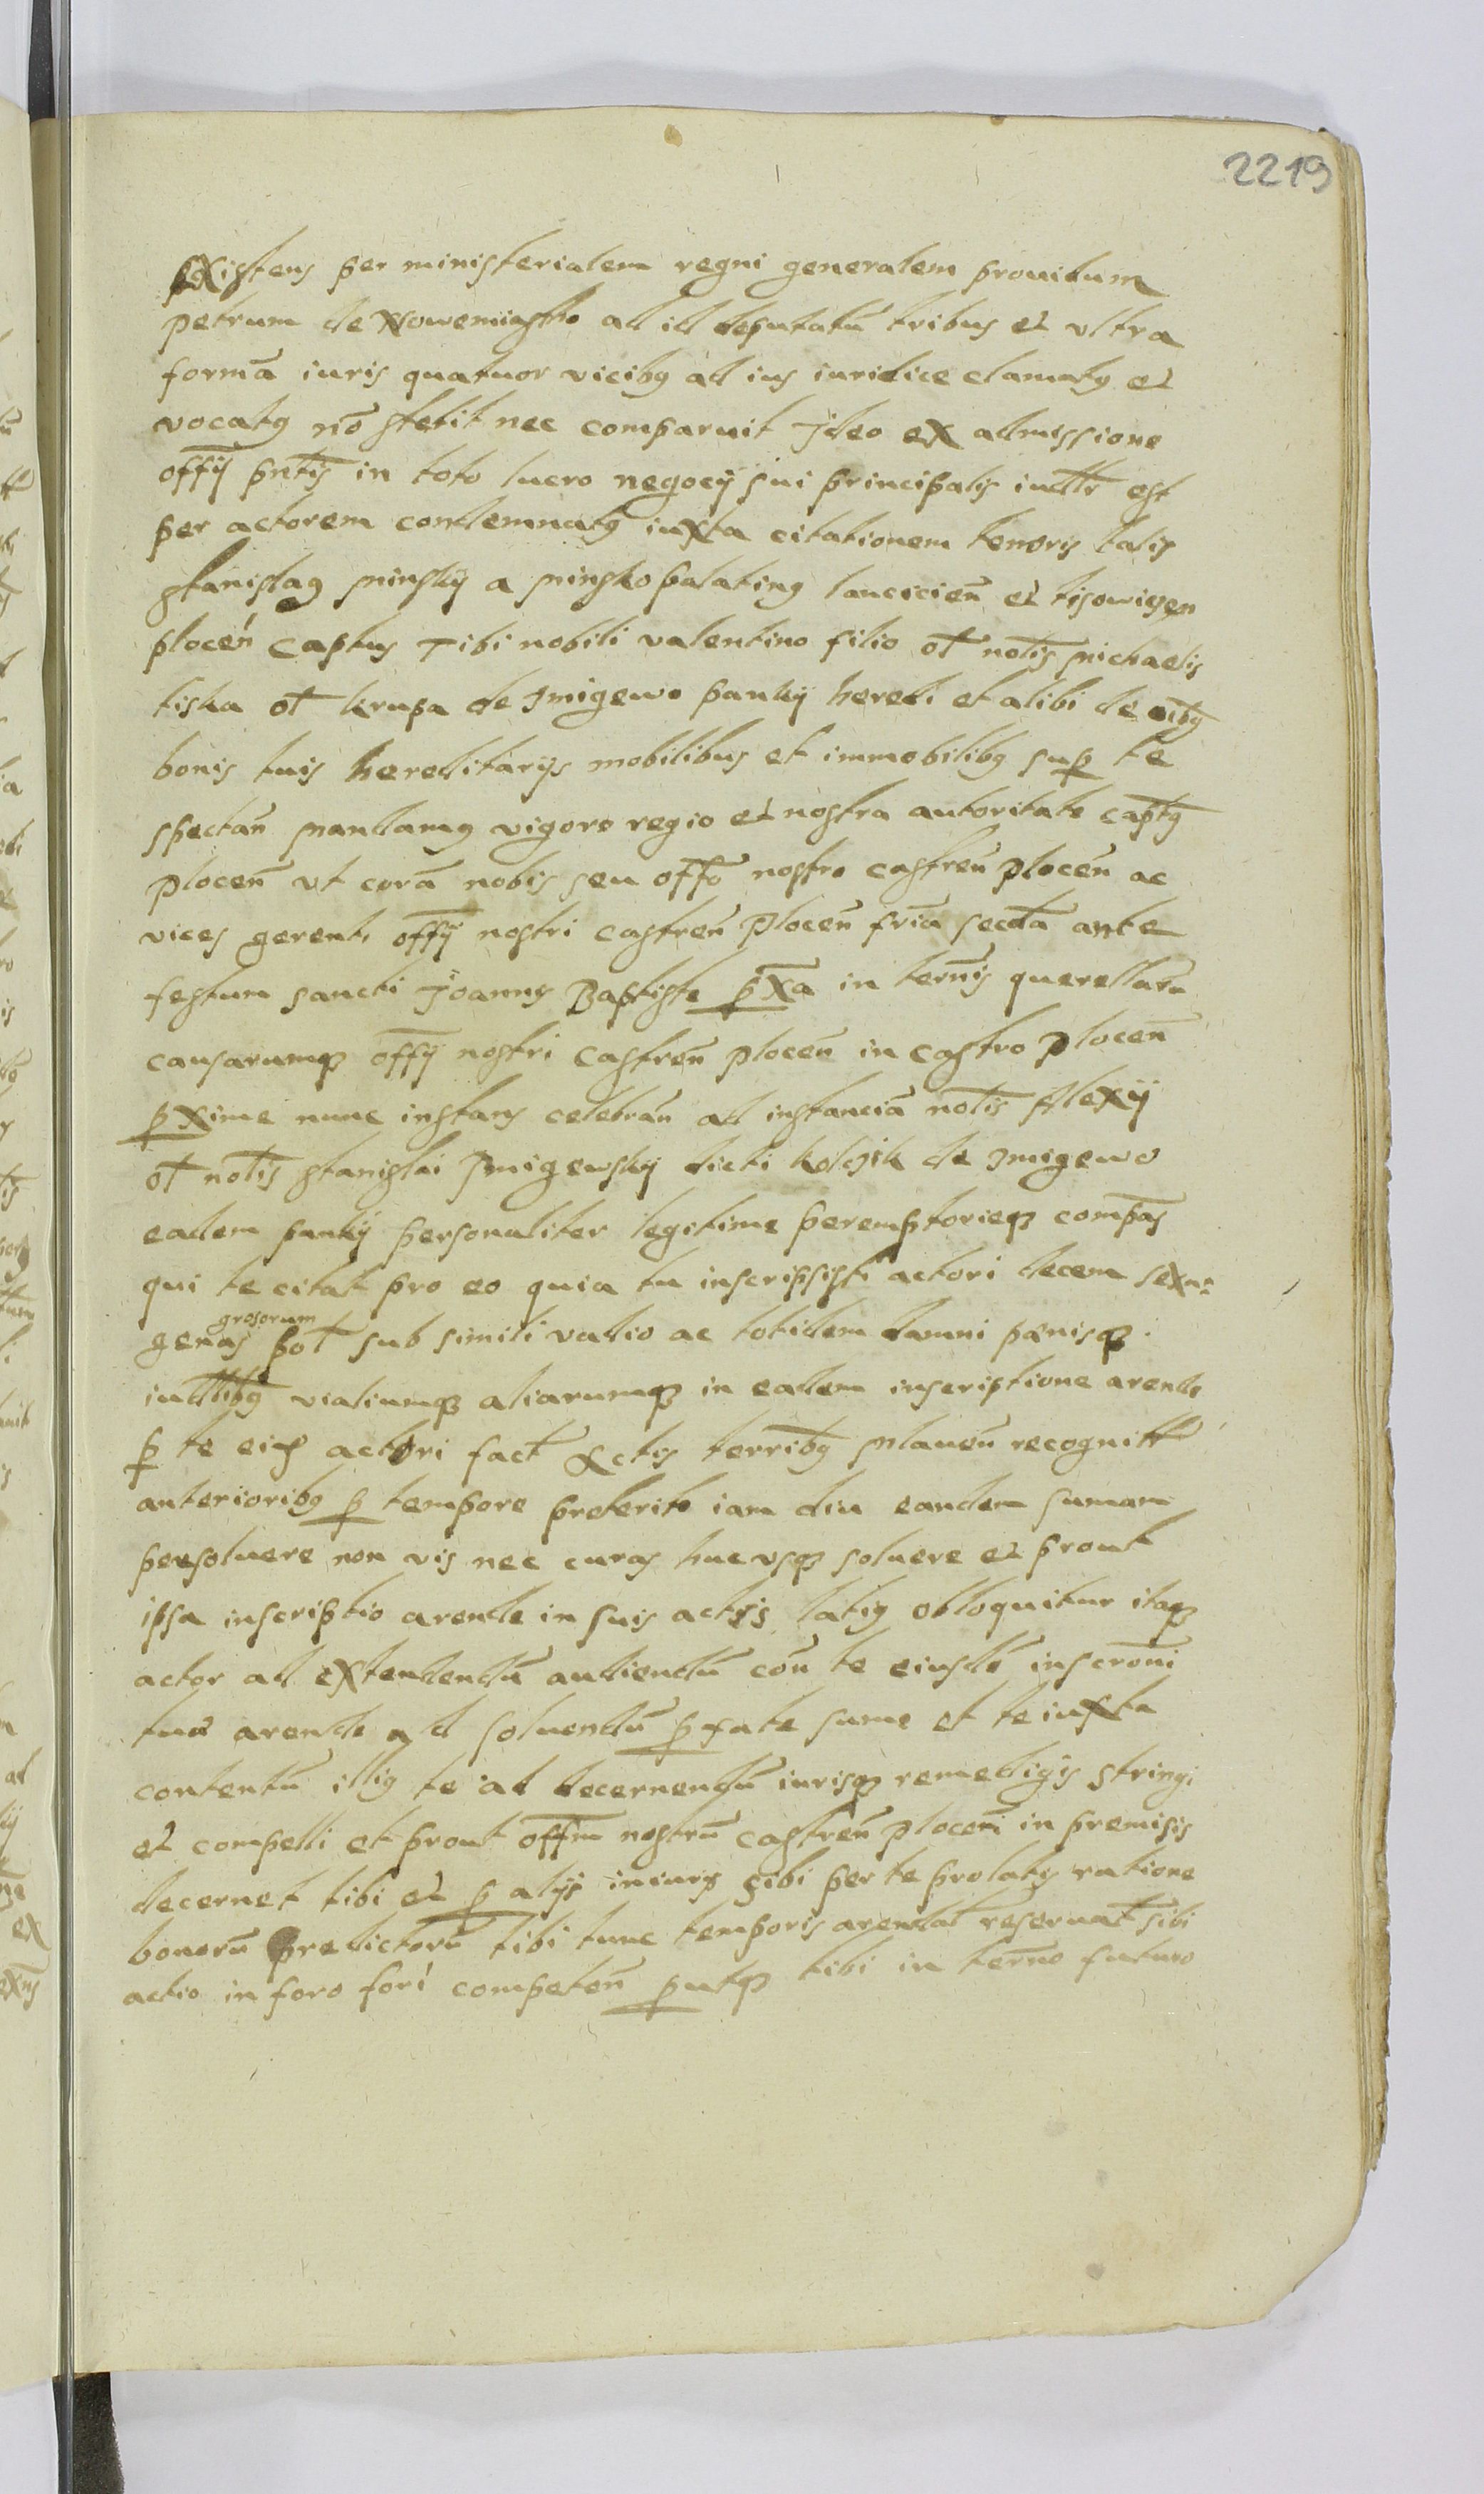 2219
existens per ministerialem regni generalem prouidum
petrum de Nowemiasto ad id deputatū tribus et vltra
formā iuris quatuor vicibꝰ ad ius iuridice clamatꝰ et
vocatꝰ nō stetit nec comparuit Ideo ex admissione
offÿ pn̄tis in toto lucro negocÿ sui principalis iudlr est
per actorem condemnatꝰ iuxta citationem tenoris talis
Stanislaꝰ Minskÿ a Minsko palatinꝰ lancicień et lisowigen
plocén Captus Tibi nobili valentino filio ol notis Michaelis
liska ol krupa de Smigewo pankÿ heredi et alibi de oībꝰ
bonis tuis hereditarÿs mobilibus et immobilibꝰ sup te
spectān Mandamꝰ vigore regio et nostra autoritate captꝰ
plocen̄ vt corā nobis seu offo nostro castren̄ plocen̄ ac
vices gerenti offÿ nostri castren̄ Plocen̄ fria secda ante
festum sancti Joannis Baptiste p̱xa in termis querellarū
causarumqꝫ offÿ nostri Castren̄ plocen̄ in castro plocen̄
p̱xime nunc instans celebrān ad instanciā notis Alexÿ
ol notis stanislai Smigewskÿ dicti kolczik de Smigewo
eadem pankÿ personaliter legitime peremptorieqꝫ compas
qui te citat pro eo quia tu inscripsisti actori decem sexa-
grosorum
genas pol sub simili vadio ac totidem damni pænisqꝫ
iudlibꝰ vialiumqꝫ aliarumqꝫ in eadem inscriptione arende
p te eidꝫ actori fact Actis terribꝰ Mlauen̄ recognitt
anterioribꝰ p tempore preterito iam diu eandem sumam
persoluere non vis nec curas huc vsqꝫ soluere et prout
ipsa inscriptio arende in suis actis latiꝰ obloquitur itaqꝫ
actor ad extendendū audiendū cōn te eiusdē inscrōni
tuæ arende ad soluendū p̱fate sume et te iuxta
contentū illiꝰ te ad decernendū iurisqꝫ remedigis stringi
et compelli et prout offm nostrū castren̄ plocen̄ in premisis
decernet tibi et p alÿs iniurÿs sibi per te prolatꝰ ratione
bonorū predictorū tibi tunc temporis arendat reseruat sibi
actio in foro fori competen̄ p̱utqꝫ tibi in termo futuro